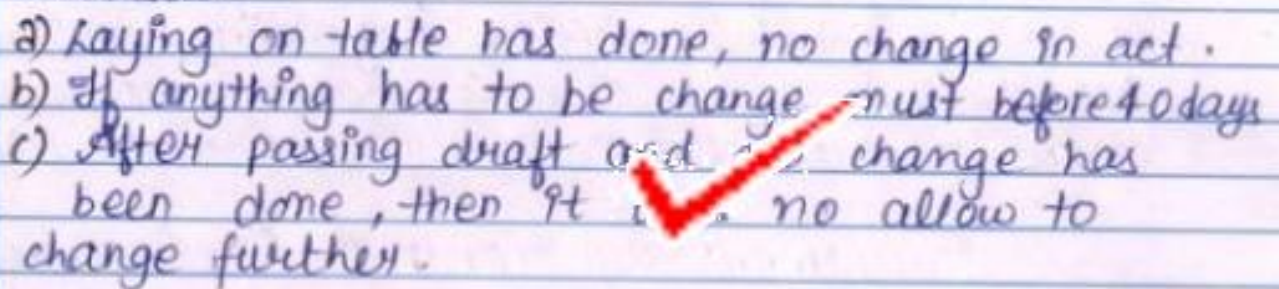 a) Laying on table has done, no change in act.
b) If anything has to be change must before 40 days
c) After passing draft and change has
been done, then it no allow to
change further.